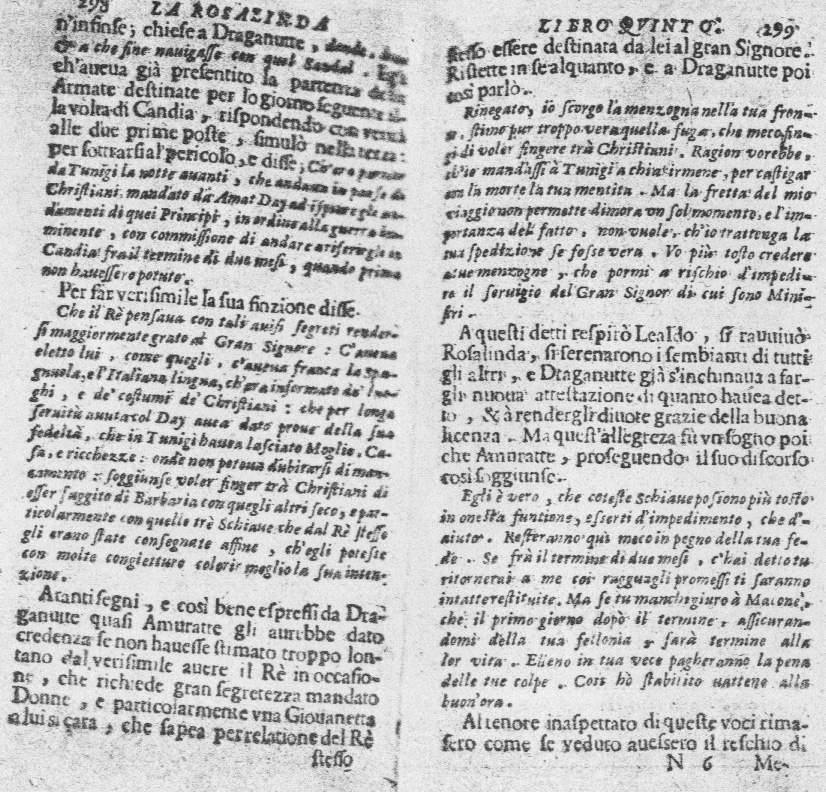 298 LA ROSALINDA
n'infinse; chiese a Draganutte, donde,
& a che fine nauigasse con quel Sandal. Egli
ch'aueua già presentito la partenza delle
Armate destinate per lo giorno seguente
la volta di Candia, rispondendo con verità
alle due prime poste, simulò nella terza:
per sottrarsi al pericolo, e disse; Ch'ero partito
da Tunigi la notte auanti, che andaua in paese di
Christiani, mandato da Amat Day ad ispiare gli an-
damenti di quei Principi, in ordine alla guerra im-
minente, con commissione di andare a riferirgli in
Candia frà il termine di due mesi, quando prima
non hauessero potuto.
Per far verisimile la sua finzione disse.
Che il Rè pensaua con tali auisi segreti render-
si maggiormente grato al Gran Signore: C'aueua
eletto lui, come quegli, c'aueua franca la Spa-
gnuola, e l'Italiana lingua, ch'era informato de' luo-
ghi, e de' costumi de' Christiani: che per longa
seruitù auuta col Day auea dato proue della sua
fedeltà, che in Tunigi hauea lasciato Moglie, Ca-
sa, e ricchezze: onde non poteua dubitarsi di man-
camento: soggiunse voler finger trà Christiani di
esser fuggito di Barbaria con quegli altri seco, e par-
ticolarmente con quelle trè Schiaue che dal Rè stesso
gli erano state consegnate affine, ch'egli potesse
con molte congietture colorir meglio la sua inten-
zione.
A tanti segni, e così bene espressi da Dra-
ganutte quasi Amuratte gli aurebbe dato
credenza se non hauesse stimato troppo lon-
tano dal verisimile auere il Rè in occasio-
ne, che richiede gran segretezza mandato
Donne, e particolarmente vna Giouanetta
a lui sì cara, che sapea per relatione del Rè
stesso
LIBRO QVINTO. 299
stesso essere destinata da lei al gran Signore.
Ristette in se alquanto, e a Draganutte poi
così parlò.
Rinegato, io scorgo la menzogna nella tua fron-
, stimo pur troppo vera quella fuga, che meco fin-
gi di voler fingere trà Christiani. Ragion vorebbe,
ch'io mandassi à Tunigi a chiarirmene, per castigar
con la morte la tua mentita. Ma la fretta del mio
viaggio non permette dimora vn sol momento, e l'im-
portanza del fatto, non vuole, ch'io trattenga la
tua spedizione se fosse vera. Vo più tosto credere
a tue menzogne, che pormi a rischio d'impedi-
re il seruigio del Gran Signor di cui sono Mini-
stri.
A questi detti respirò Lealdo, si rauuiuò
Rosalinda, si serenarono i sembianti di tutti
gli altri, e Draganutte già s'inchinaua a far-
gli nuoua attestazione di quanto hauea det-
to, & à rendergli diuote grazie della buona
licenza. Ma quest'allegreza fù vn sogno poi
che Amuratte, proseguendo il suo discorso
così soggiunse.
Egli è vero, che coteste Schiaue posiono più tosto
in onesta funtione, esserti d'impedimento, che d'-
aiuto. Resteranno quì meco in pegno della tua fe-
de. Se frà il termine di due mesi, c'hai detto tu
ritornerai a me coi ragguagli promessi ti saranno
intatte restituite. Ma se tu manchi giuro à Macone,
che il primo giorno dopò il termine, assicuran-
domi della tua fellonia, farà termine alla
lor vita. Elleno in tua vece pagheranno la pena
delle tue colpe. Così hò stabilito vattene alla
buon'ora.
Al tenore inaspettato di queste voci rima-
sero come se veduto auessero il teschio di
N 6 Me-